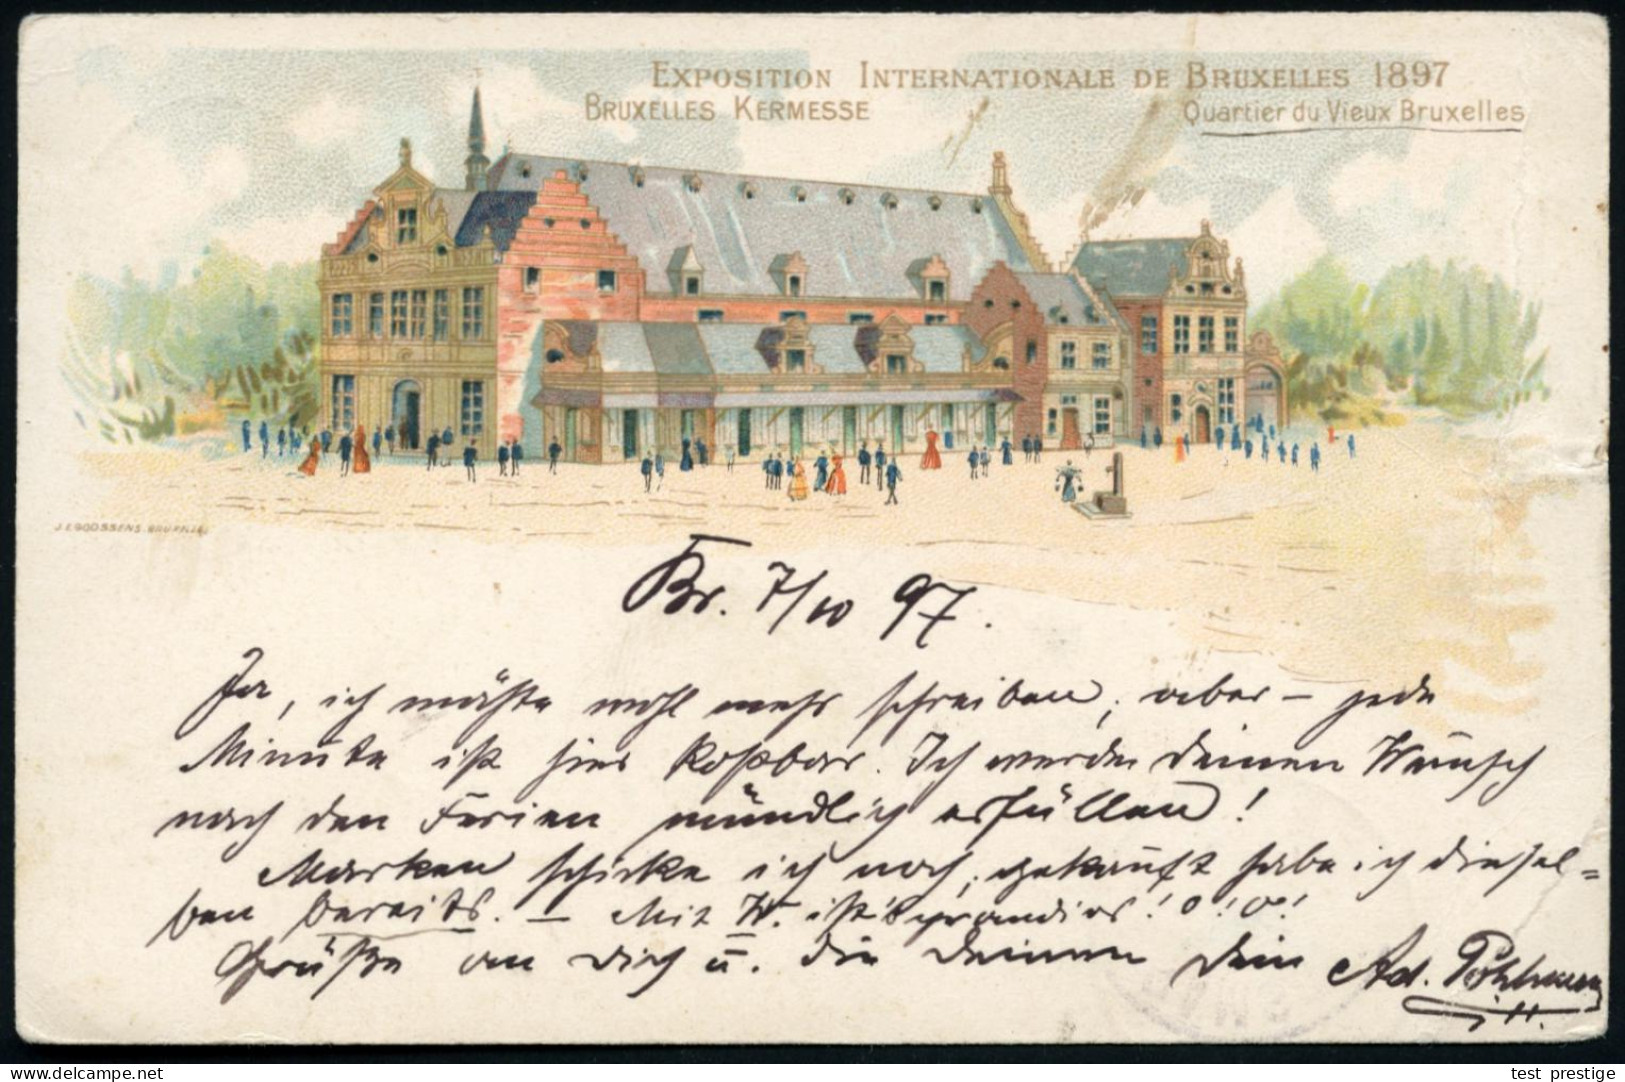 EXPOSITION INTERNATIONALE DE BRUXELLES 1897
BRUXELLES KERMESSE Quartier du Vieux Bruxelles
J.E. GOOSSENS. BRUXELLES
Br. 7/10 97.
Ja, ich möchte wohl mehr schreiben, aber – jede
Minute ist hier kostbar. Ich werde deinen Wunsch
nach den Ferien mündlich erfüllen!
Marken schicke ich noch, gekauft habe ich diesel=
ben bereits. – Mit W. ist's grandios! o! o!
Grüße an dich u. die deinen dein Ad. Pöhlmann
test prestige